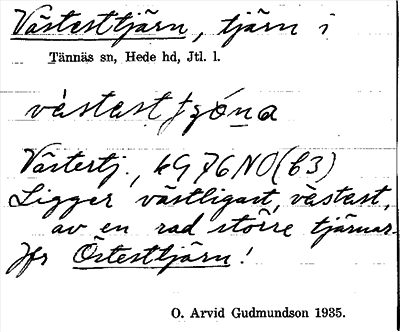 Västesttjärn, tjärn i
Tännäs sn, Hede hd, Jtl. l.
västast tjóna
Västertj., kG 76 NO (b3)
Ligger västligast, västast,
av en rad större tjärnar.
Jfr Östesttjärn!
O. Arvid Gudmundson 1935.